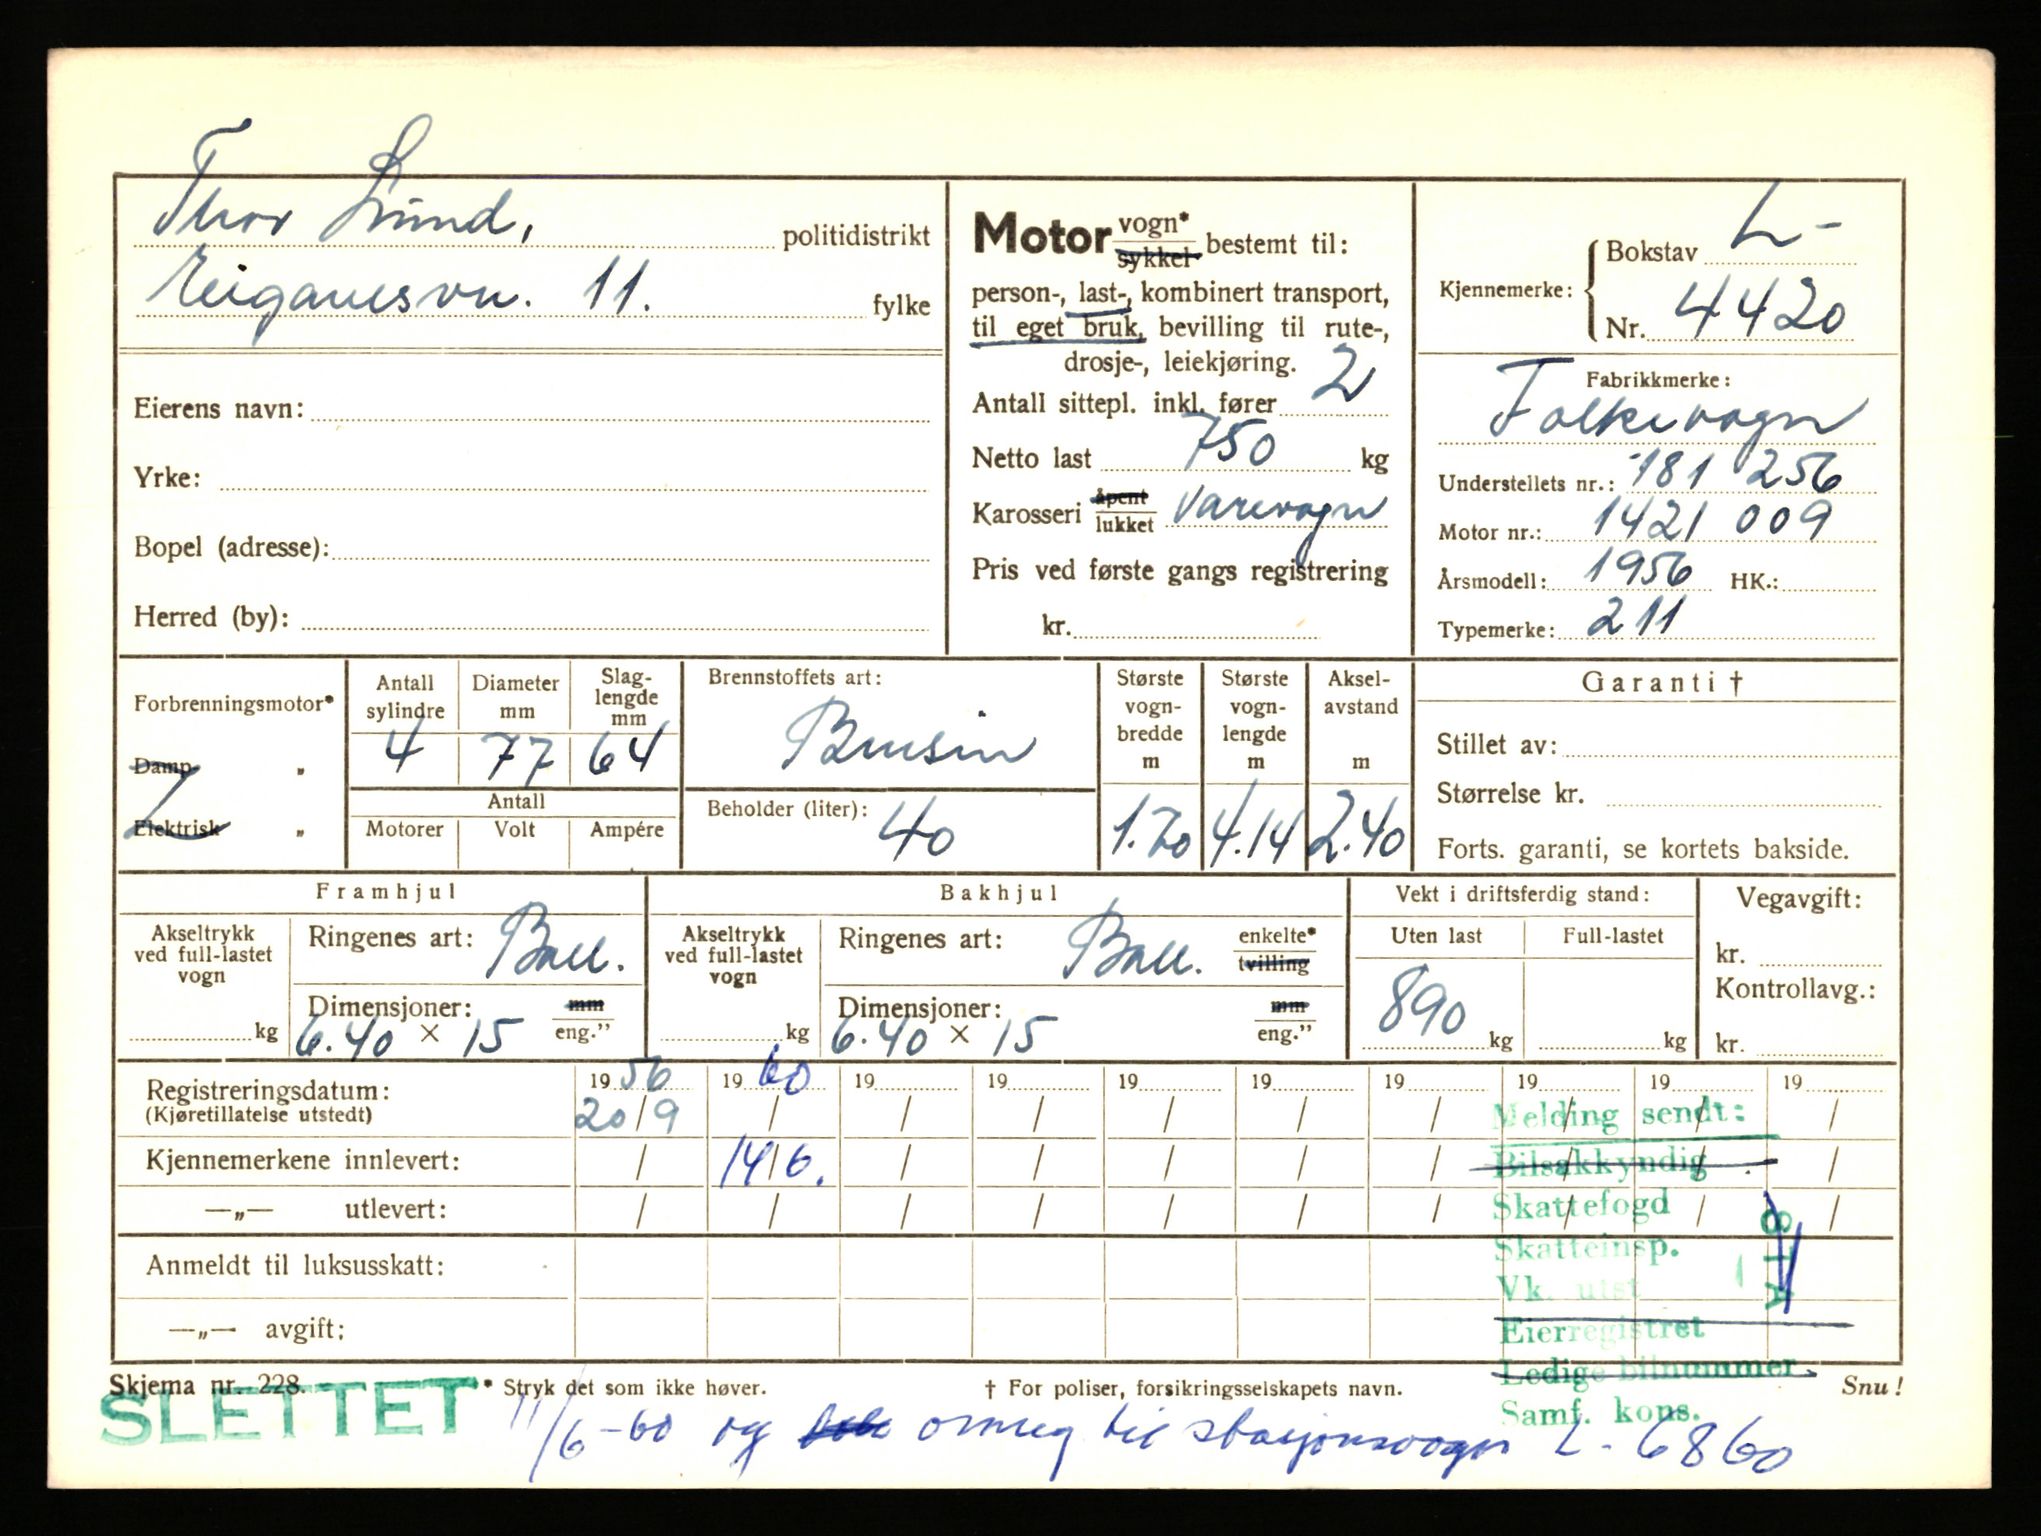 Thor Lund, politidistrikt
Eiganesvn. 11. fylke
Eierens navn:
Yrke:
Bopel (adresse):
Herred (by):
Motor vogn* sykkel bestemt til:
person-, last-, kombinert transport,
til eget bruk, bevilling til rute-,
drosje-, leiekjøring.
Antall sittepl. inkl. fører 2
Netto last 750 kg
Karosseri åpent lukket Varevogn
Pris ved første gangs registrering
kr.
Kjennemerke: Bokstav L-
Nr. 4420
Fabrikkmerke:
Folkevogn
Understellets nr.: 181 256
Motor nr.: 1421 009
Årsmodell: 1956 HK.:
Typemerke: 211
Forbrenningsmotor*
Damp „
Elektrisk „
Antall sylindre 4
Diameter mm 77
Slag-lengde mm 64
Antall
Motorer Volt Ampére
Brennstoffets art:
Bensin
Beholder (liter): 40
Største vogn-bredde m 1.70
Største vogn-lengde m 4.14
Aksel-avstand m 2.40
Garanti †
Stillet av:
Størrelse kr.
Forts. garanti, se kortets bakside.
Framhjul
Akseltrykk ved full-lastet vogn
kg
Ringenes art: Ball.
Dimensjoner: mm
6.40 × 15 eng.”
Bakhjul
Akseltrykk ved full-lastet vogn
kg
Ringenes art: Ball. enkelte* tvilling
Dimensjoner: mm
6.40 × 15 eng.”
Vekt i driftsferdig stand:
Uten last Full-lastet
890 kg kg
Vegavgift:
kr.
Kontrollavg.:
kr.
Registreringsdatum: 19 56 19 60 19 19 19 19 19 19 19 19
(Kjøretillatelse utstedt) 20/9 / / / / / / / / /
Kjennemerkene innlevert: / 14/6. / / / / / / / /
—„— utlevert: / / / / / / / / / /
Anmeldt til luksusskatt:
—„— avgift:
Melding sendt:
Bilsakkyndig
Skattefogd
Skatteinsp.
Vk. utst
Eierregistret
Ledige bilnummer
Samf. kons.
STA
Skjema nr. 228. * Stryk det som ikke høver. † For poliser, forsikringsselskapets navn. Snu!
SLETTET 11/6-60 og omreg til stasjonsvogn L-6860